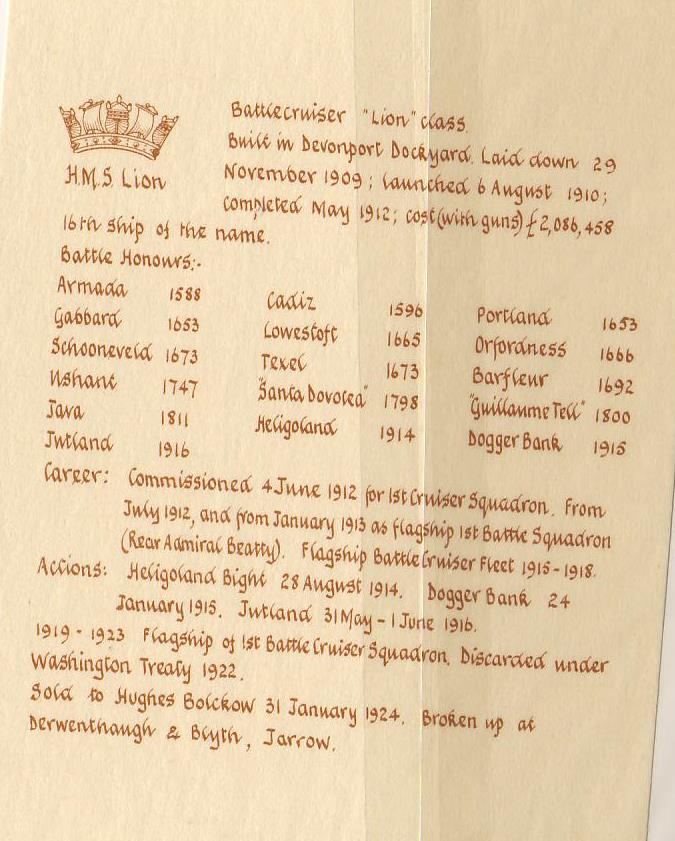 Battlecruiser "Lion" class.
Built in Devonport Dockyard. Laid down 29
H.M.S. Lion November 1909; launched 6 August 1910;
completed May 1912; cost (with guns) £2,086,458
16th ship of the name.
Battle Honours:-
Armada 1588 Cadiz 1596 Portland 1653
Gabbard 1653 Lowestoft 1665 Orfordness 1666
Schooneveld 1673 Texel 1673 Barfleur 1692
Ushant 1747 "Santa Dovotea" 1798 "Guillaume Tell" 1800
Java 1811 Heligoland 1914 Dogger Bank 1915
Jutland 1916
Career: Commissioned 4 June 1912 for 1st Cruiser Squadron. From
July 1912, and from January 1913 as flagship 1st Battle Squadron
(Rear Admiral Beatty). Flagship Battle Cruiser Fleet 1915-1918.
Actions: Heligoland Bight 28 August 1914. Dogger Bank 24
January 1915. Jutland 31 May - 1 June 1916.
1919 - 1923 Flagship of 1st Battle Cruiser Squadron. Discarded under
Washington Treaty 1922.
Sold to Hughes Bolckow 31 January 1924. Broken up at
Derwenthaugh & Blyth, Jarrow.